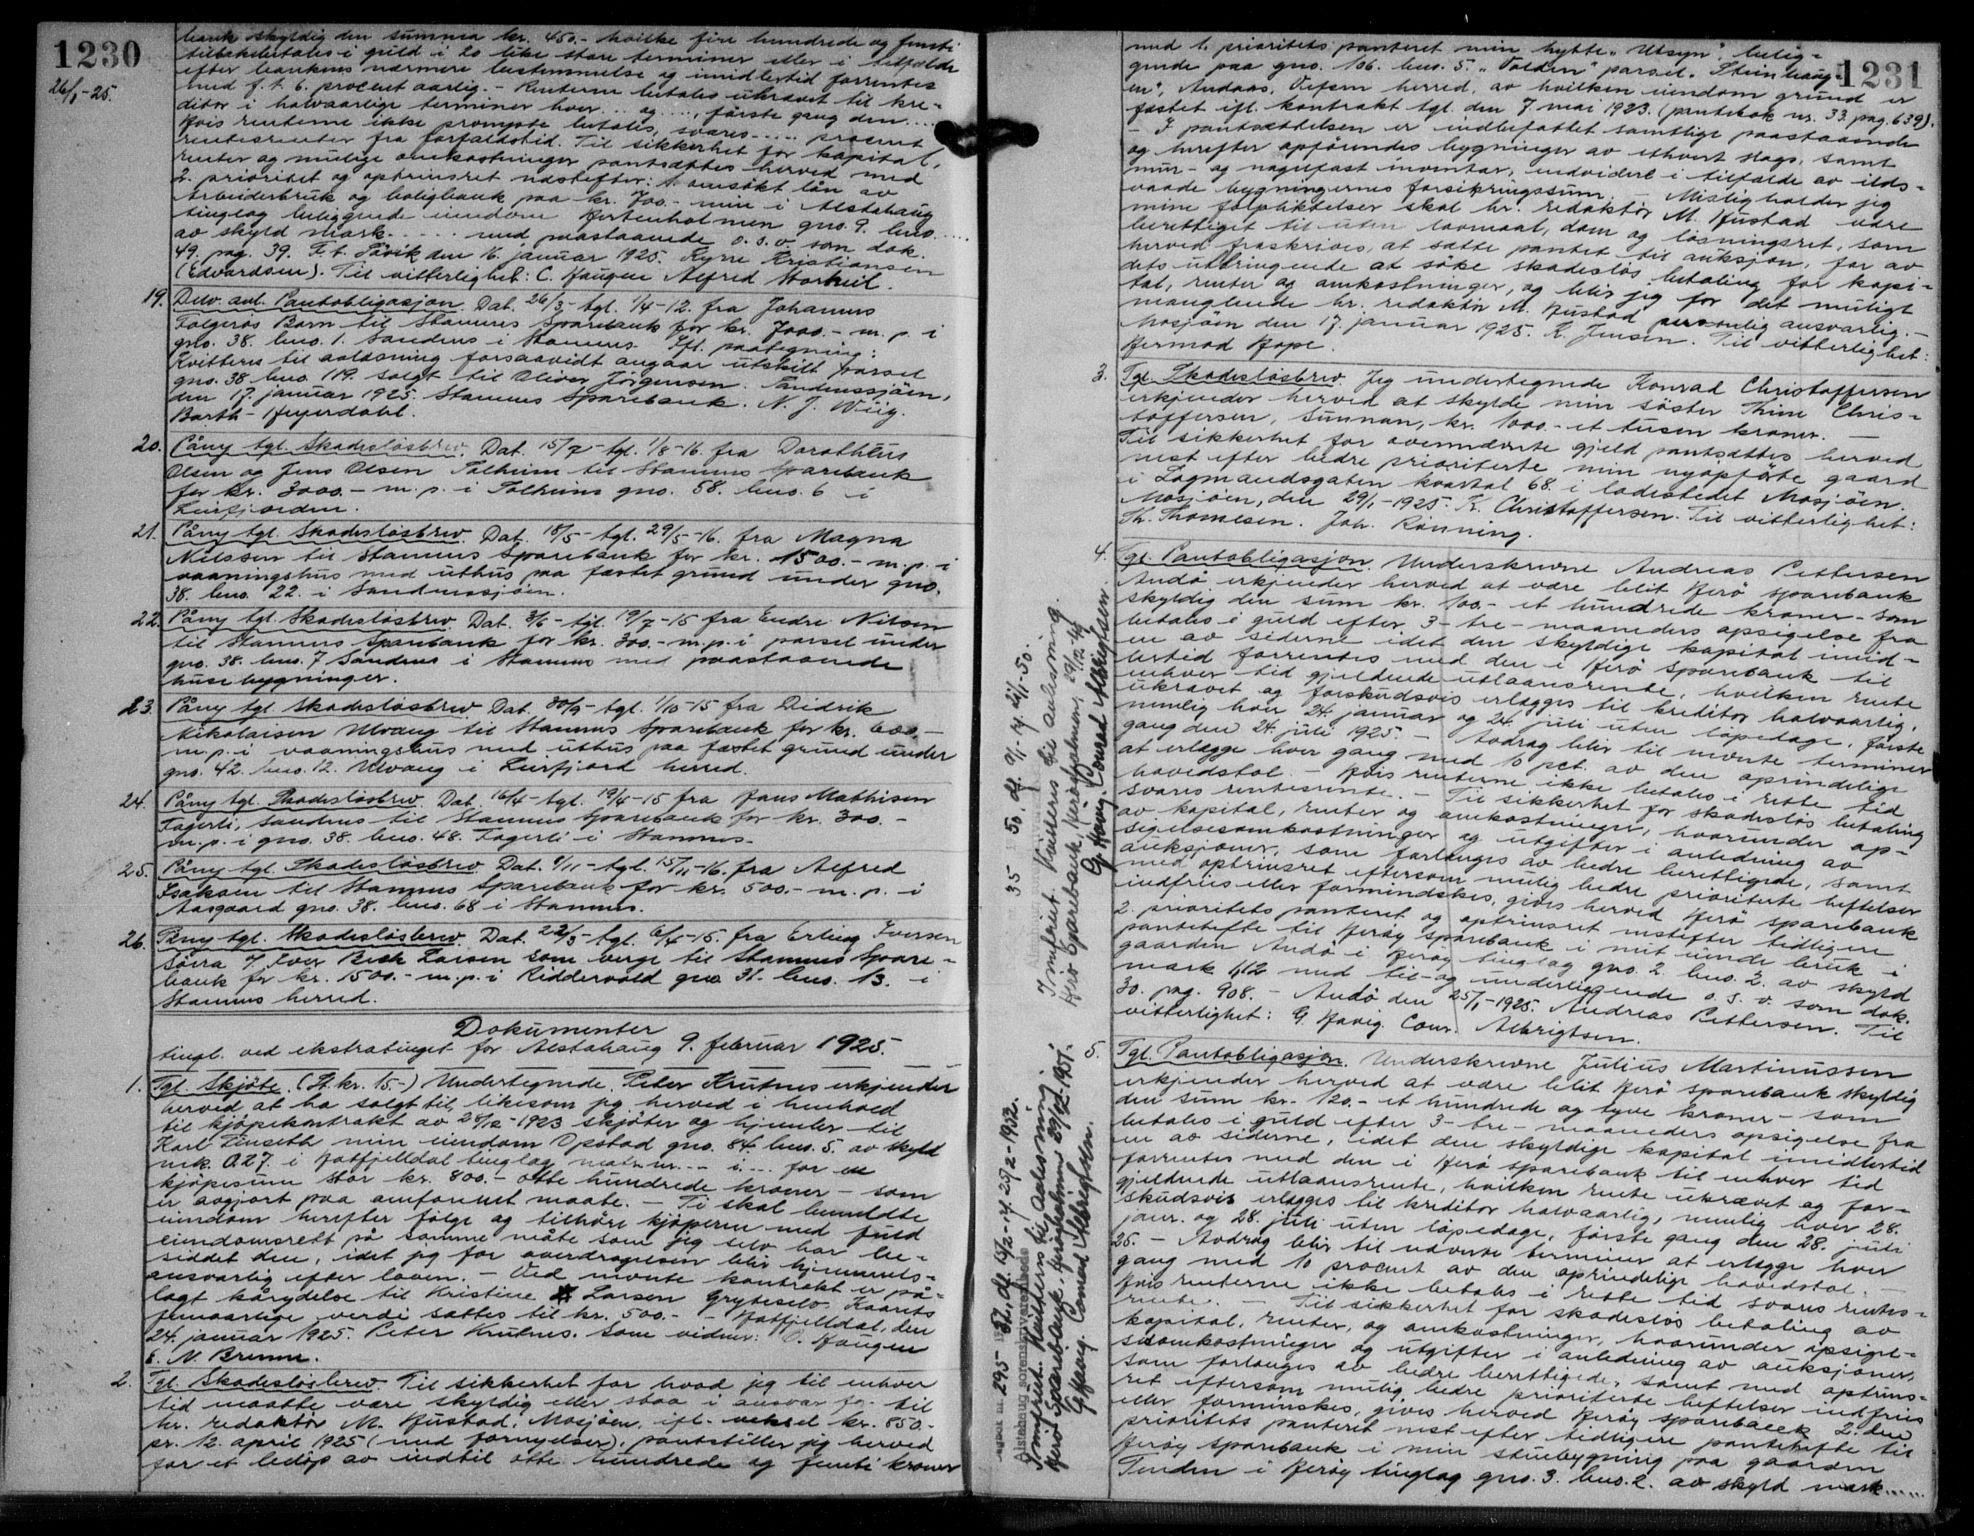 1230
26/1-25.
bank skyldig den summa kr. 450.- hvilke fire hundrede og femti
tilbakebetales i guld i 20 like store terminer eller i tilfælde
efter bankens nærmere bestemmelse og imidlertid forrentes
med f. t. 6. procent aarlig. - Renterne betales ukrævet til kre-
ditor i halvaarlige terminer hver .. og ...., første gang den ....
Hvis renterne ikke prompte betales, svares ..... procent
rentesrenter fra forfaldstid. Til sikkerhet for kapital,
renter og mulige omkostninger pantsættes herved med
2. prioritet og optrinsret næstefter: 1. ansøkt lån av
Arbeiderbruk og boligbank paa kr. 700.- min i Alstahaug
tinglag beliggende eiendom Hestenholmen gno. 9. bno. ....
av skyld mark. ..... med paastaaende o.s.v. som dok.
49. pag. 39. F. t. Søvik den 16. januar 1925. Kyrre Kristiansen
(Edvardsen). Til vitterlighet: C. Haugen Alfred Storkiil.
19. Delv. avl. Pantobligasjon. Dat. 26/3- tgl. 1/4-12. fra Johannes
Falgerøs Barn til Stamnes Sparebank for kr. 7000.- m. p. i
gno. 38. bno. 1. Sandnes i Stamnes. Ifl. paategning:
Kvitteres til avlæsning forsaavidt angaar utskilt parsel
gno. 38 bno. 119. solgt til Oliver Jørgensen. Sandnessjøen,
den 17. januar 1925. Stamnes Sparebank. N. J. Wiig.
Barth-Heyerdahl.
20. Påny tgl. Skadesløsbrev. Dat. 15/7- tgl. 1/8-16. fra Dorotheus
Olsen og Jens Olsen Solheim til Stamnes Sparebank
for kr. 3000.- m. p. i Solheims gno. 58. bno. 6 i
Leirfjorden.
21. Påny tgl. Skadesløsbrev. Dat. 18/5- tgl. 29/5-16. fra Magna
Nilssen til Stamnes Sparebank for kr. 1500.- m. p. i
vaaningshus med uthus paa fæstet grund under gno.
38. bno. 22. i Sandnessjøen.
22. Påny tgl. Skadesløsbrev. Dat. 3/6- tgl. 19/7-15 fra Endre Nilsen
til Stamnes Sparebank for kr. 300.- m. p. i parsel under
gno. 38. bno. 7 Sandnes i Stamnes med paastaaende
huse bygninger.
23. Påny tgl. Skadesløsbrev. Dat. 30/9- tgl. 1/10-15 fra Didrik
Nikolaisen Ulvang til Stamnes Sparebank for kr. 600.-
m. p. i vaaningshus med uthus paa fæstet grund under
gno. 42. bno. 12. Ulvang i Leirfjord herred.
24. Påny tgl. Skadesløsbrev. Dat. 16/4- tgl. 19/4-15 fra Hans Mathisen
Fagerli, Sandnes til Stamnes Sparebank for kr. 300.-
m. p. i gno. 38. bno. 48. Fagerli i Stamnes.
25. Påny tgl. Skadesløsbrev. Dat. 9/11- tgl. 15/11-16. fra Alfred
Isaksen til Stamnes Sparebank for kr. 500.- m. p. i
Aasgaard gno. 38. bno. 68 i Stamnes.
26. Påny tgl. Skadesløsbrev. Dat. 22/3- tgl. 6/4-15. fra Erling Iversen
Søvra v/ Iver Bech Larsen som verge til Stamnes Spare-
bank for kr. 1500.- m. p. i Riddervold gno. 31. bno. 13. i
Stamnes herred.
Dokumenter
tingl. ved ekstratinget for Alstahaug 9. februar 1925.
1. Tgl. Skjøte. (St. kr. 15.-) Undertegnede Peter Krutnes erkjender
herved at ha solgt til, likesom jeg herved i henhold
til kjøpekontrakt av 28/12-1923 skjøter og hjemler til
Karl Linseth min eiendom Opstad gno. 84. bno. 5. av skyld
mk. 0.27 i Hatfjelldal tinglag, matr. nr. ... i ... for en
kjøpesum stor kr. 800.- otte hundrede kroner - som
er avgjort paa omforenet maate. - Ti skal bemeldte
eiendom herefter følge og tilhøre kjøperen med fuld
eiendomsrett på samme måte som jeg selv har be-
siddet den, idet jeg for overdragelsen blir hjemmels-
ansvarlig efter loven. - Ved nevnte kontrakt er på-
lagt kårydelse til Kristine Larsen Gryteselv. Kaarets
femaarlige verdi sættes til kr. 500.- Hatfjelldal, den
24. januar 1925. Peter Krutnes. Som vidner: O. Haugen
E. N. Brenne.
2. Tgl. Skadesløsbrev. Til sikkerhet for hvad jeg til enhver
tid maatte være skyldig eller staa i ansvar for til
hr. redaktør M. Hustad, Mosjøen, ifl. veksel kr. 850.-
pr. 12. april 1925 (med fornyelser), pantstiller jeg herved
for et beløp av indtil otte hundrede og femti kroner
1231
med 1. prioritets panteret min hytte "Utsyn", belig-
gende paa gno. 106. bno. 5. "Volden" parsel. "Steinhaug-
en", Andaas, Vefsen herred, av hvilken eiendom grund er
fæstet ifl. kontrakt tgl. den 7. mai 1923. (pantebok nr. 33. pag. 639).
- I pantsættelsen er indbefattet samtlige paastaaende
og herefter opførendes bygninger av ethvert slags, samt
mur- og nagelfast inventar, endvidere i tilfælde av ilds-
vaade bygningernes forsikringssum. - Misligholder jeg
mine forpliktelser skal hr. redaktør M. Hustad være
berettiget til uten lovmaal, dom og løsningsret, som
herved fraskrives, at sætte pantet til auksjon, for av
dets utbringende at søke skadesløs betaling for kapi-
tal, renter og omkostninger, og blir jeg for det muligt
manglende hr. redaktør M. Hustad personlig ansvarlig. -
Mosjøen den 17. januar 1925. K. Jensen. Til vitterlighet:
Hermod Hope.
3. Tgl. Skadesløsbrev. Jeg undertegnede Konrad Christoffersen
erkjender herved at skylde min søster Thine Chris-
toffersen, Sunnan, kr. 1000.- et tusen kroner. -
Til sikkerhet for ovennævnte gjeld pantsættes herved
nest efter bedre prioriterte min nyopførte gaard
i Lagmandsgaten kvartal 68. i ladestedet Mosjøen.
Mosjøen, den 29/1-1925. K. Christoffersen. Til vitterlighet:
Th. Thomesen. Joh. Rønning.
4. Tgl. Pantobligasjon. Underskrevne Andreas Pettersen
Andø erkjender herved at være blit Herø sparebank
skyldig den sum kr. 100.- et hundrede kroner - som
betales i guld efter 3-tre-maaneders opsigelse fra
en av siderne idet den skyldige kapital imid-
lertid forrentes med den i Herø Sparebank til
enhver tid gjeldende utlaansrente, hvilken rente
ukrævet og forskudsvis erlægges til kreditor halvaarlig,
nemlig hver 24. januar og 24. juli uten løpedage, første
gang den 24. juli 1925. - Avdrag blir til nævnte terminer
at erlægge hver gang med 10 pct. av den oprindelige
hovedstol. - Hvis renterne ikke betales i rette tid
svares rentesrente. - Til sikkerhet for skadesløs betaling
av kapital, renter og omkostninger, hvorunder op-
sigelsesomkostninger og utgifter i anledning av
auksjoner, som forlanges av bedre berettigede, samt
med optrinsret eftersom mulig bedre prioriterte heftelser
indfries eller formindskes, gives herved Herø sparebank
2. prioritets panteret og optrinsret nestefter tidligere
panteheftе til Herøy sparebank i mit eiende bruk i
gaarden Andø i Herøy tinglag gno. 2. bno. 2. av skyld
mark 1,12 med til- og underliggende o. s. v. som dok.
30. pag. 908. - Andø den 25/1-1925. Andreas Pettersen. Til
vitterlighet: G. Havig. Conr. Albrigtsen.
5. Tgl. Pantobligasjon. Underskrevne Julius Martinussen
erkjender herved at være blit Herø sparebank skyldig
den sum kr. 120.- et hundrede og tyve kroner - som
betales i guld efter 3-tre-maaneders opsigelse fra
en av siderne, idet den skyldige kapital imidlertid
forrentes med den i Herø sparebank til enhver tid
gjeldende utlaansrente, hvilken rente ukrævet og for-
skudsvis erlægges til kreditor halvaarlig, nemlig hver 28.
janr. og 28. juli uten løpedage, første gang den 28. juli
25. - Avdrag blir til nævnte terminer at erlægge hver
gang med 10 procent av den oprindelige hovedstol. -
Hvis renterne ikke betales i rette tid svares rentes-
rente. - Til sikkerhet for skadesløs betaling av
kapital, renter, og omkostninger, hvorunder opsigel-
sesomkostninger og utgifter i anledning av auksjoner,
som forlanges av bedre berettigede, samt med optrins-
ret eftersom mulig bedre prioriterte heftelser indfries
eller formindskes, gives herved Herøy sparebank 2. den
prioritets panteret nest efter tidligere panteheftе til
Herøy sparebank i min stuebygning paa gaarden
Tenden i Herøy tinglag gno. 3. bno. 2. av skyld mark......
35 50. df. 9/1-14 2/1-50.
Innfriet. Kvitteres til avlesning.
Herø Sparebank, Herøyholmen, 29/12.49
G. Havig Conrad Albrigtsen
295 52. df. 16/2-14 25/2-1952.
Alstahaug sorenskriverembede
Innfriet. Kvitteres til avlesning.
Herø Sparebank, Herøyholmen 29/12-1951.
G. Havig Conrad Albrigtsen.